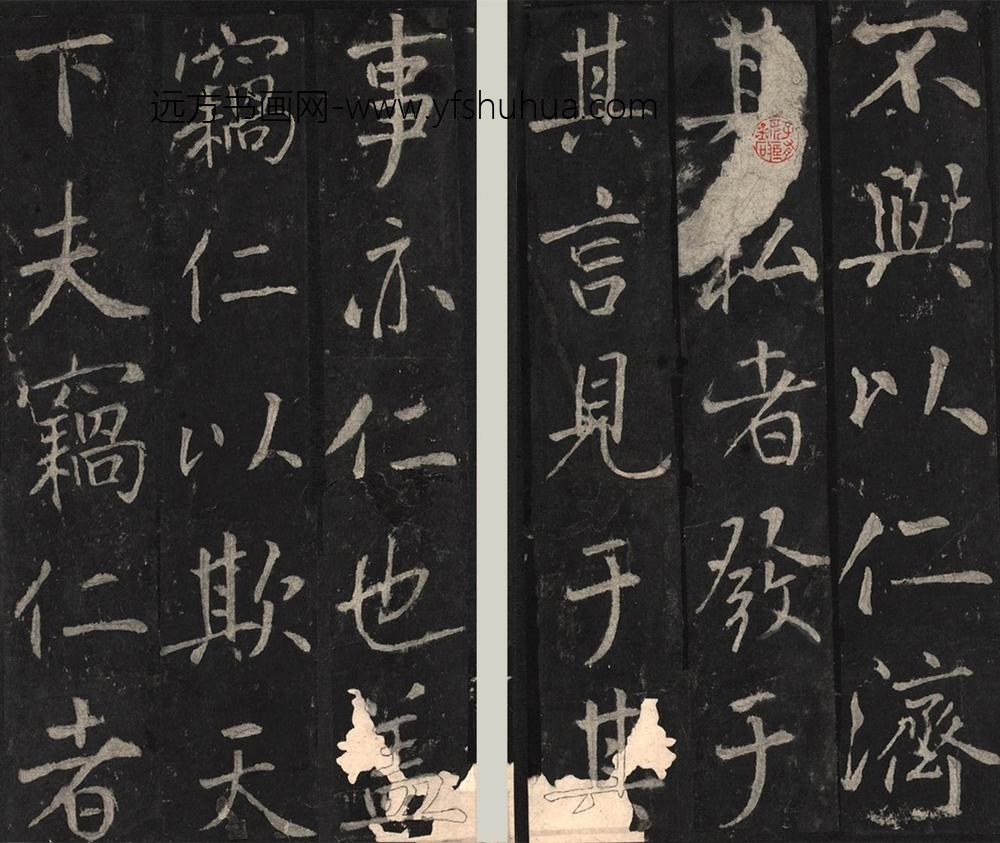 不與以仁濟
其私者發于
其言見于其
事亦仁也蓋
竊仁以欺天
下夫竊仁者
远方书画网-www.yfshuhua.com